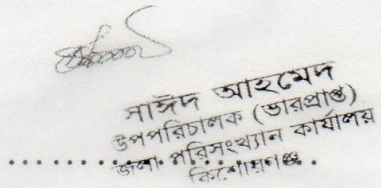 সাঈদ আহমেদ
উপপরিচালক (ভারপ্রাপ্ত)
জেলা পরিসংখ্যান কার্যালয়
কিশোরগঞ্জ